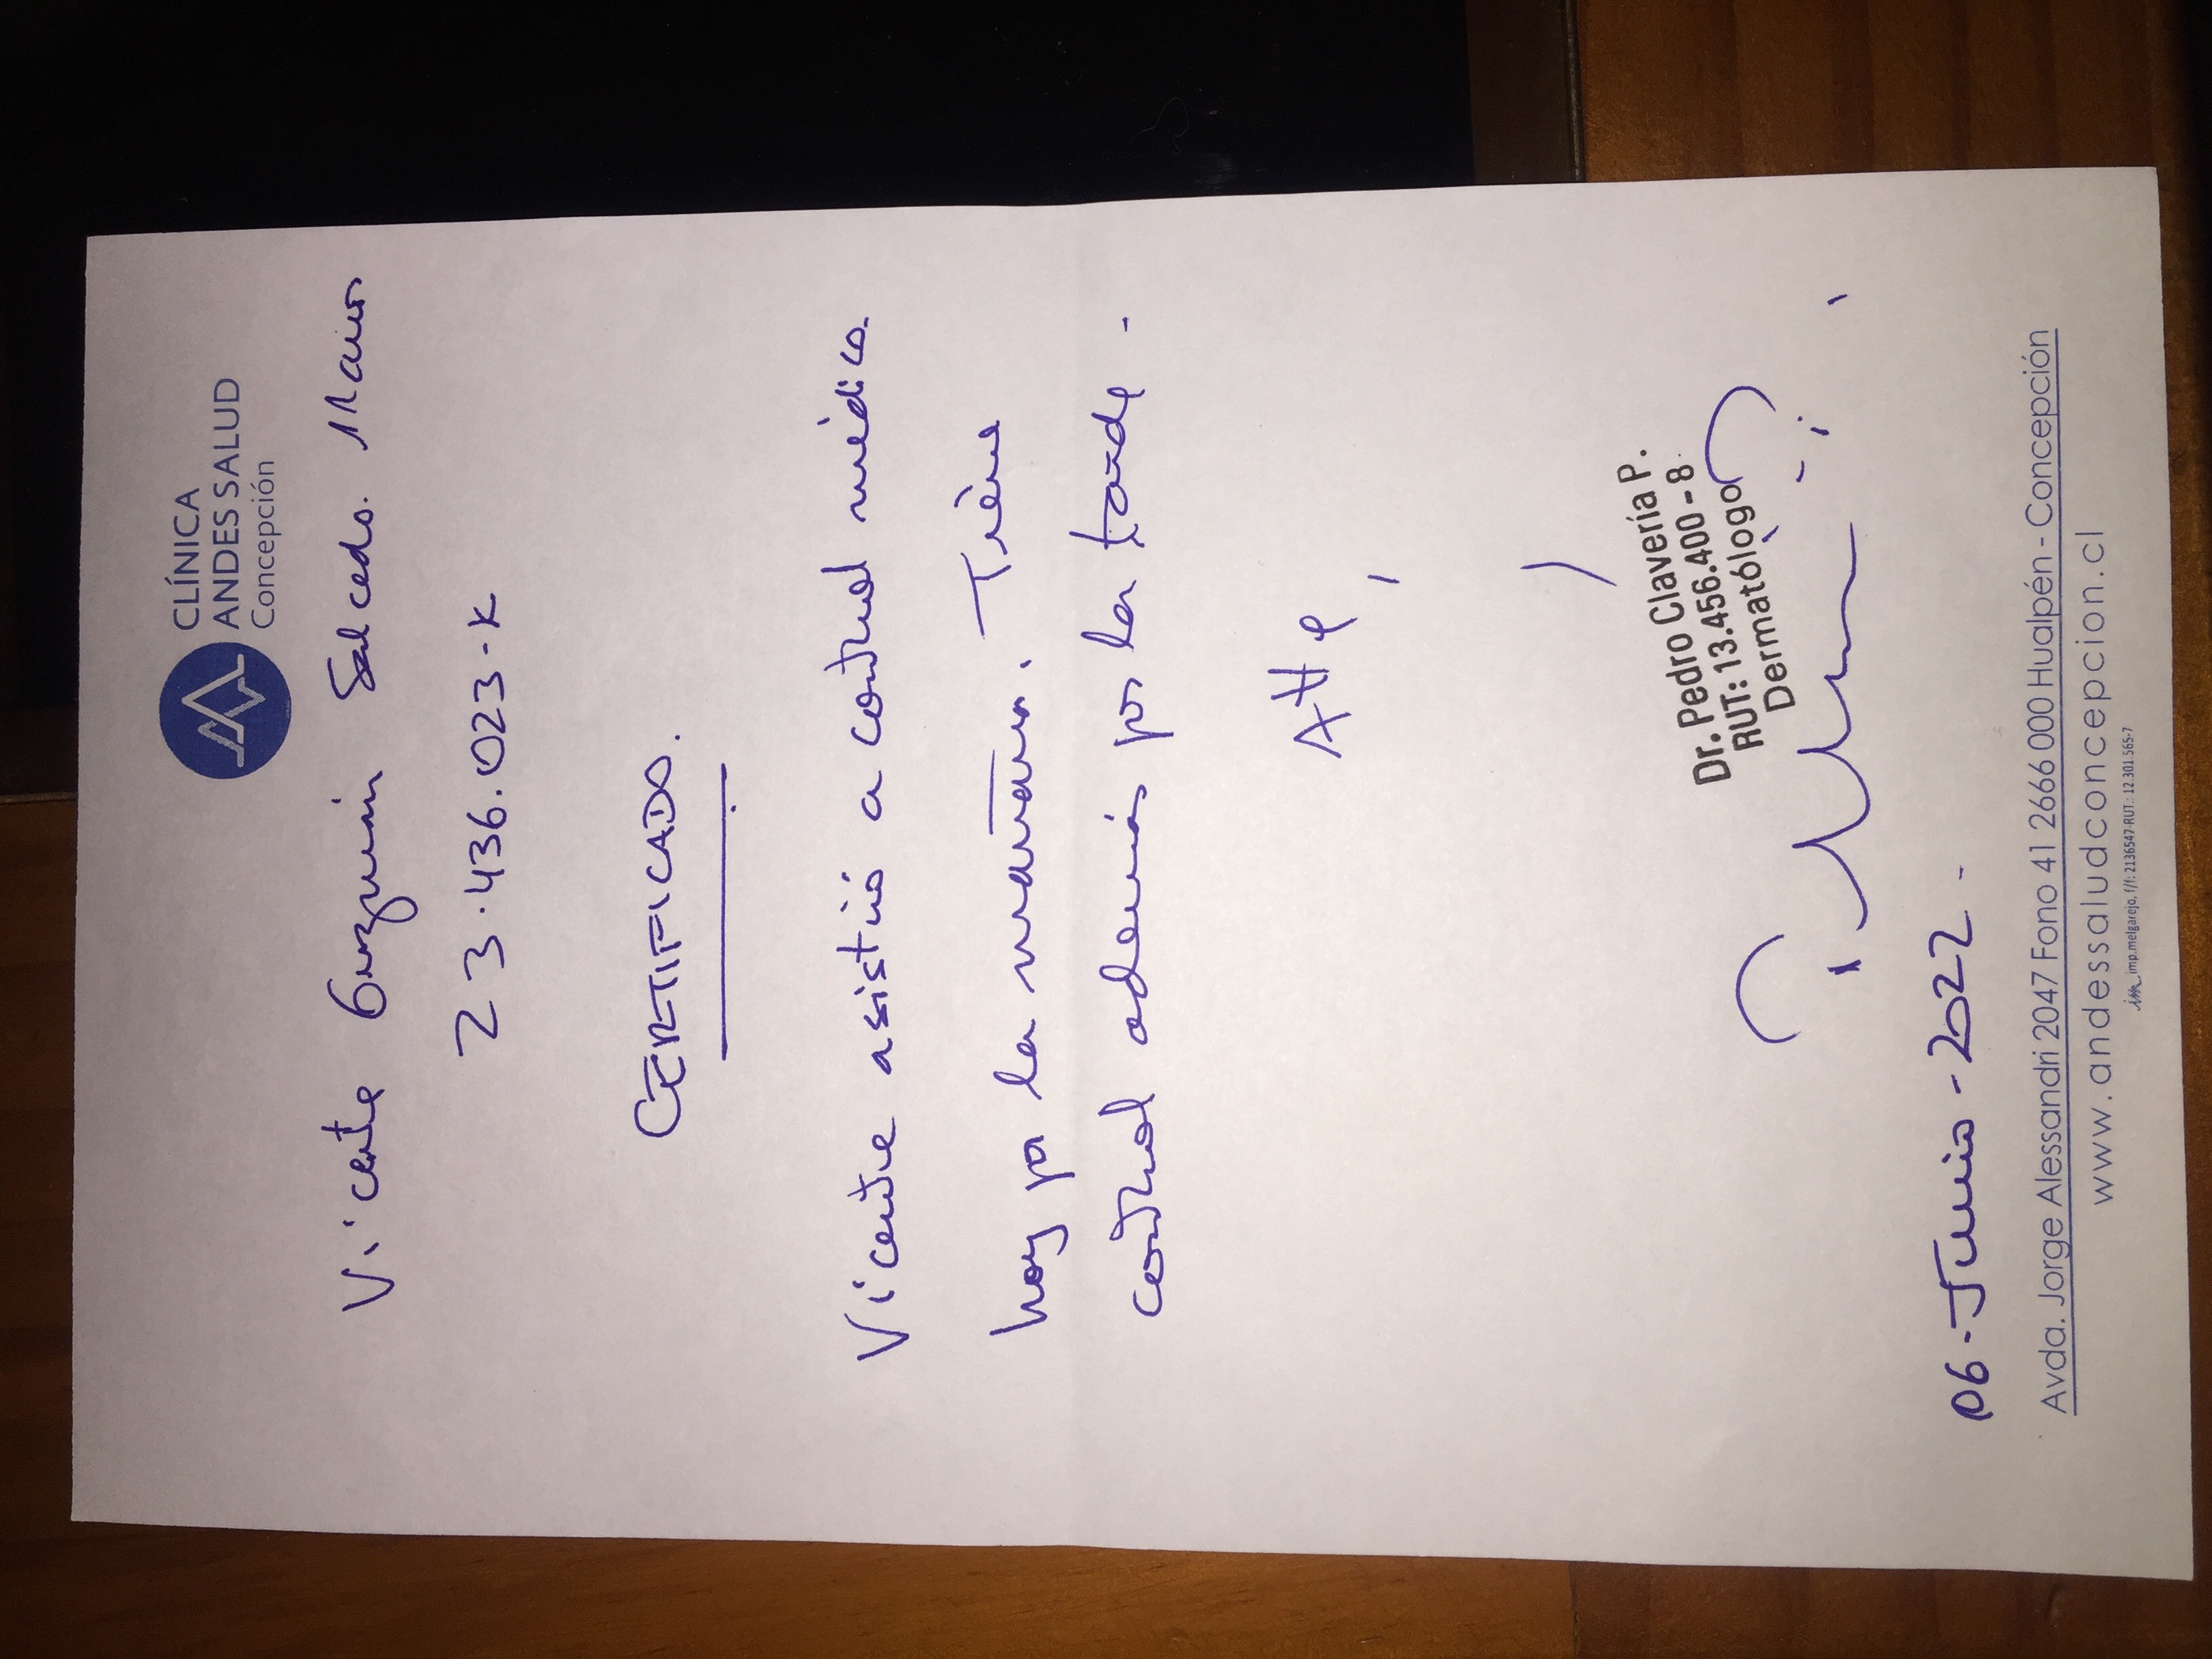 CLÍNICA
ANDES SALUD
Concepción
Vicente Salcedo.
23.436.023-K
CERTIFICADO.
Vicente asistió a control médico.
hoy por la mañana. Tiene
control además por la tarde -
Atte,
Dr. Pedro Clavería P.
RUT: 13.456.400-8
Dermatólogo
06-Junio-2022-
Avda. Jorge Alessandri 2047 Fono 41 2666 000 Hualpén - Concepción
www.andessaludconcepcion.cl
imp.melgarejo, f/f: 2136547-RUT.: 12.301.565-7